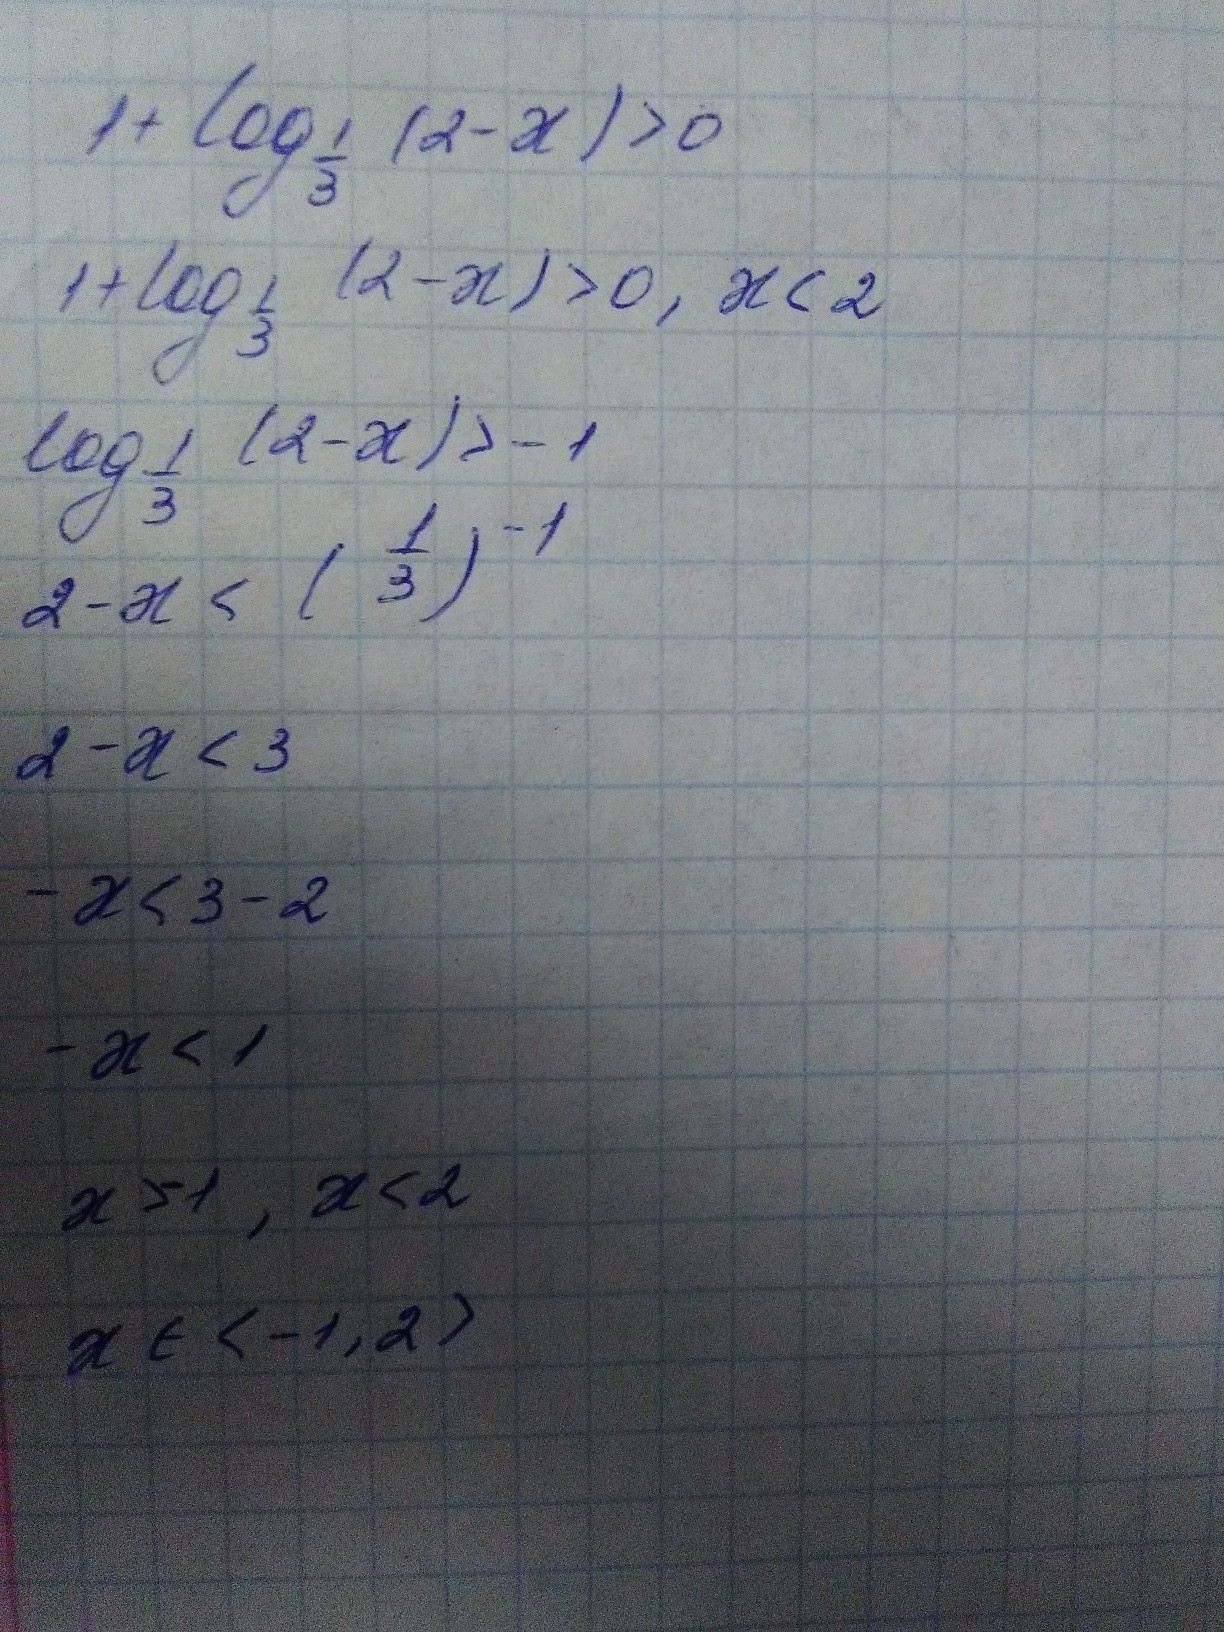 1 + log_{1/3} (2 - x) > 0
1 + log_{1/3} (2 - x) > 0, x < 2
log_{1/3} (2 - x) > -1
2 - x < (1/3)^{-1}
2 - x < 3
- x < 3 - 2
- x < 1
x > 1, x < 2
x ∈ < -1, 2 >